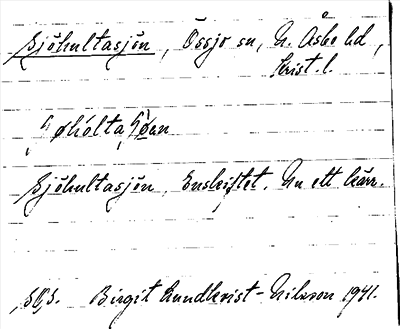 Sjöhultasjön, Össjö sn, N. Åsbo hd,
Krist. l.
Sjöhultasjön, Enskiftet. Nu ett kärr.
Birgit Lundkvist-Nilsson 1941.